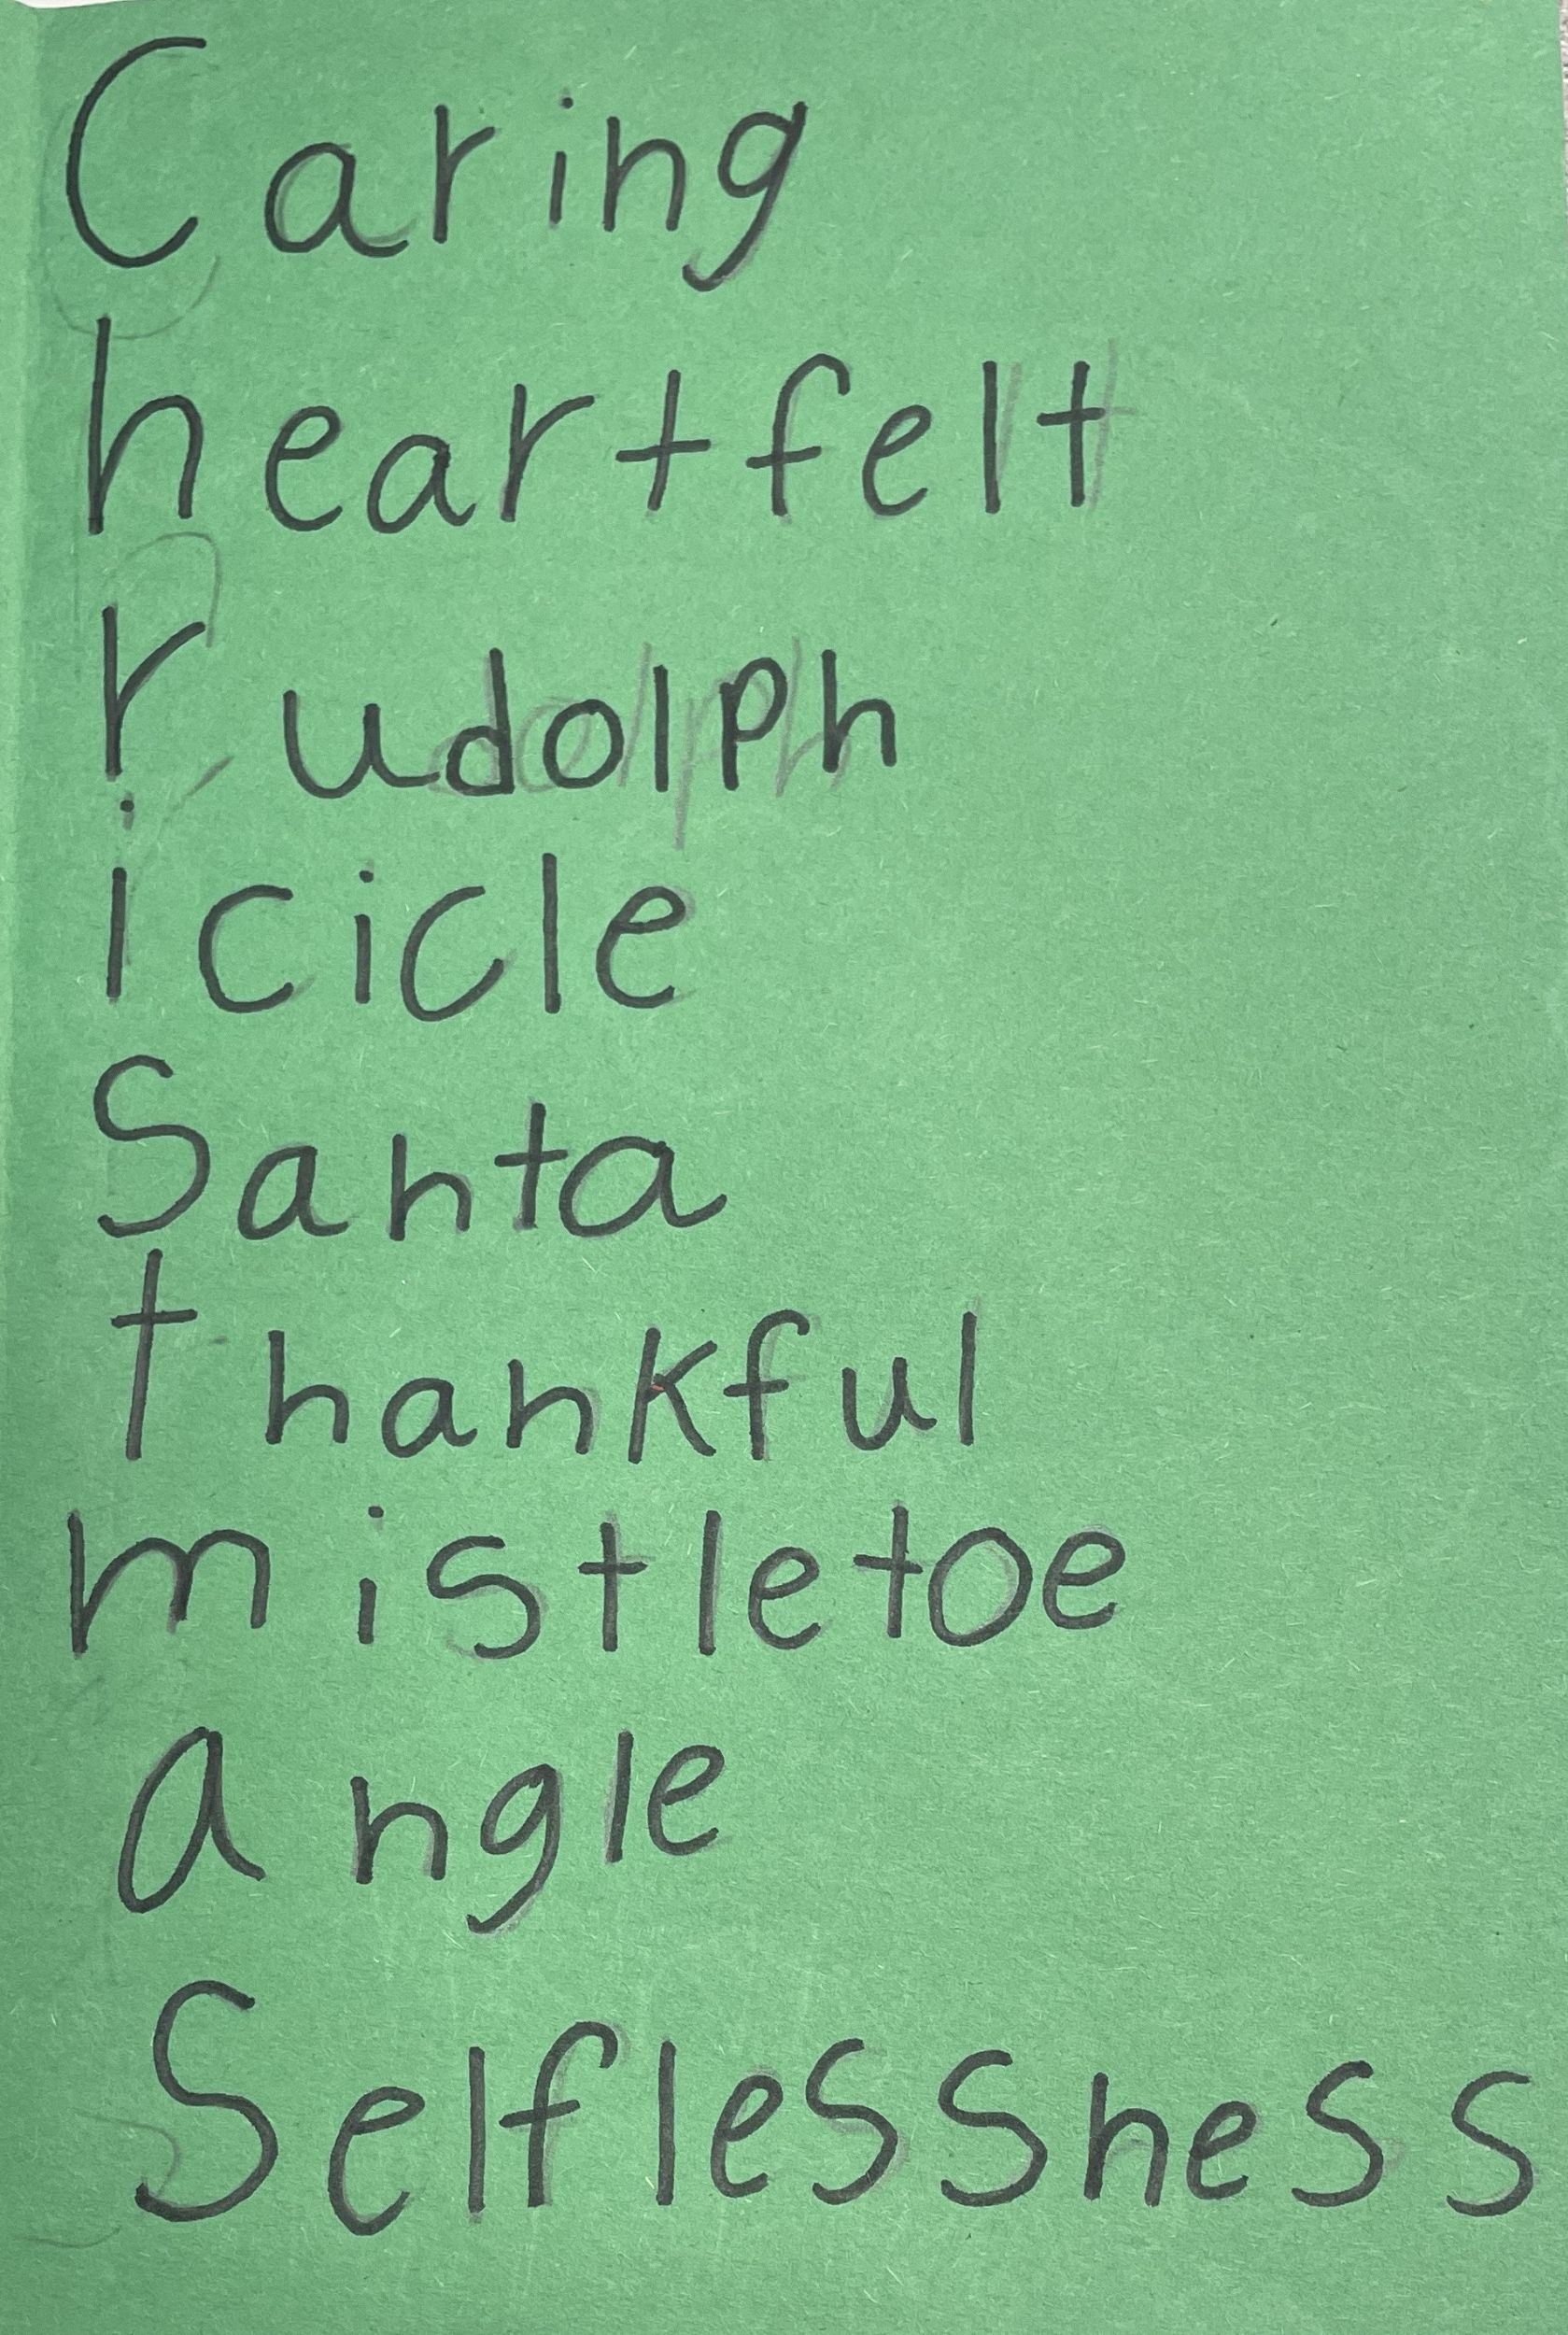 Caring
heartfelt
rudolph
icicle
Santa
thankful
mistletoe
angle
Selflessness